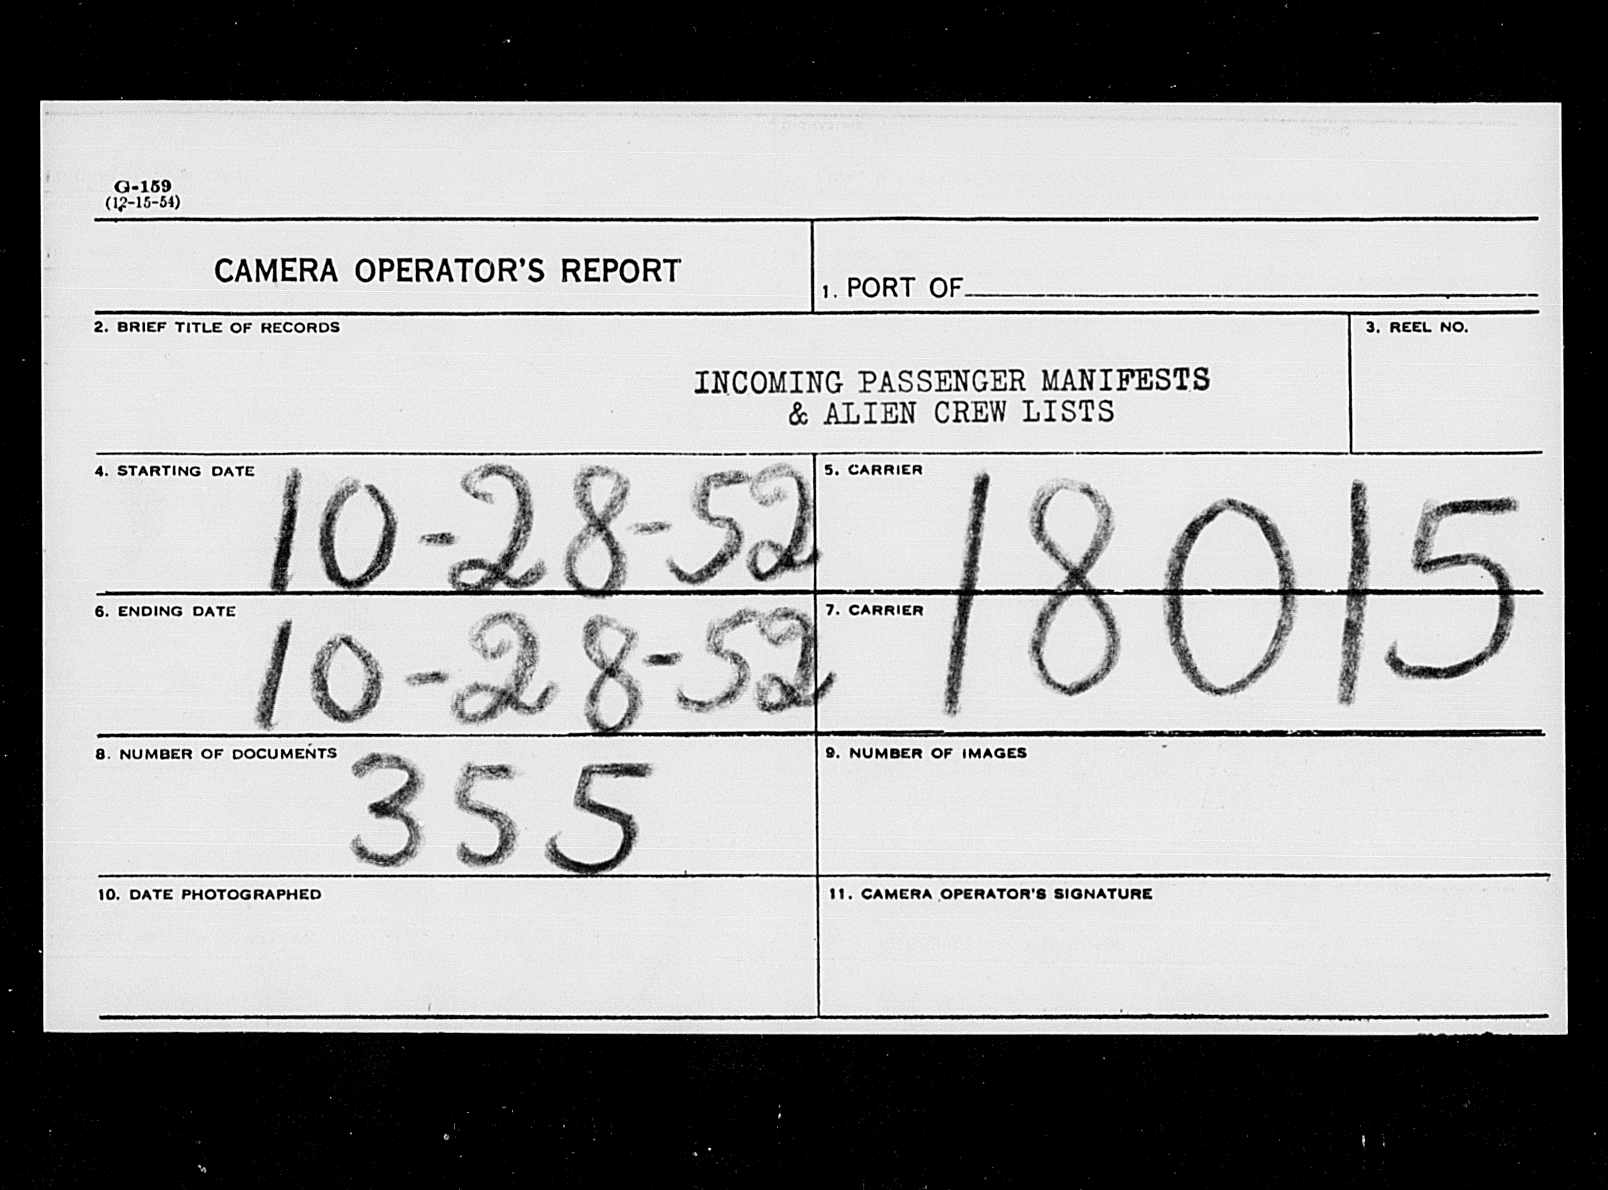 G-159
(12-15-54)
CAMERA OPERATOR'S REPORT
1. PORT OF
2. BRIEF TITLE OF RECORDS
3. REEL NO.
INCOMING PASSENGER MANIFESTS
& ALIEN CREW LISTS
4. STARTING DATE
10-28-52
5. CARRIER
18015
6. ENDING DATE
10-28-52
7. CARRIER
8. NUMBER OF DOCUMENTS
355
9. NUMBER OF IMAGES
10. DATE PHOTOGRAPHED
11. CAMERA OPERATOR'S SIGNATURE